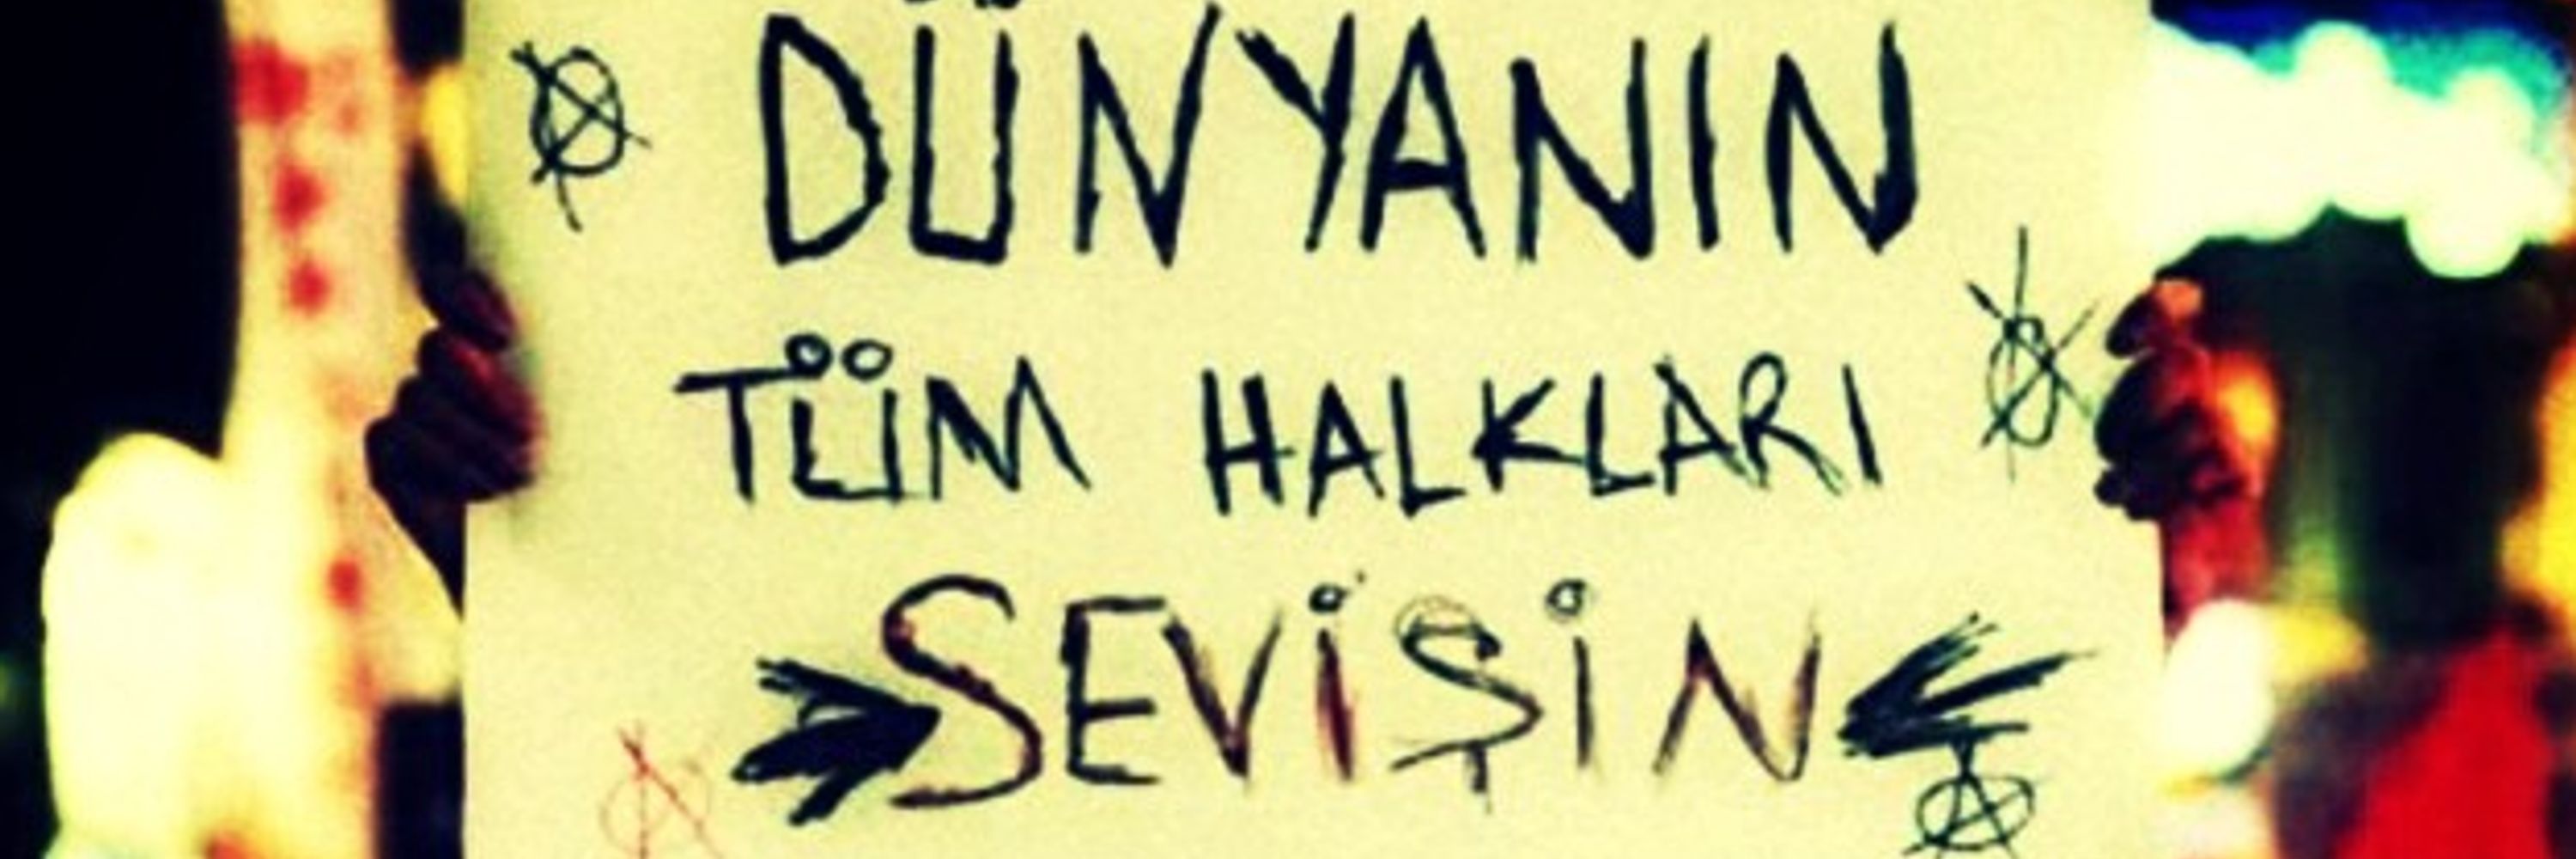 DÜNYANIN
TÜM HALKLARI
SEVİŞİN